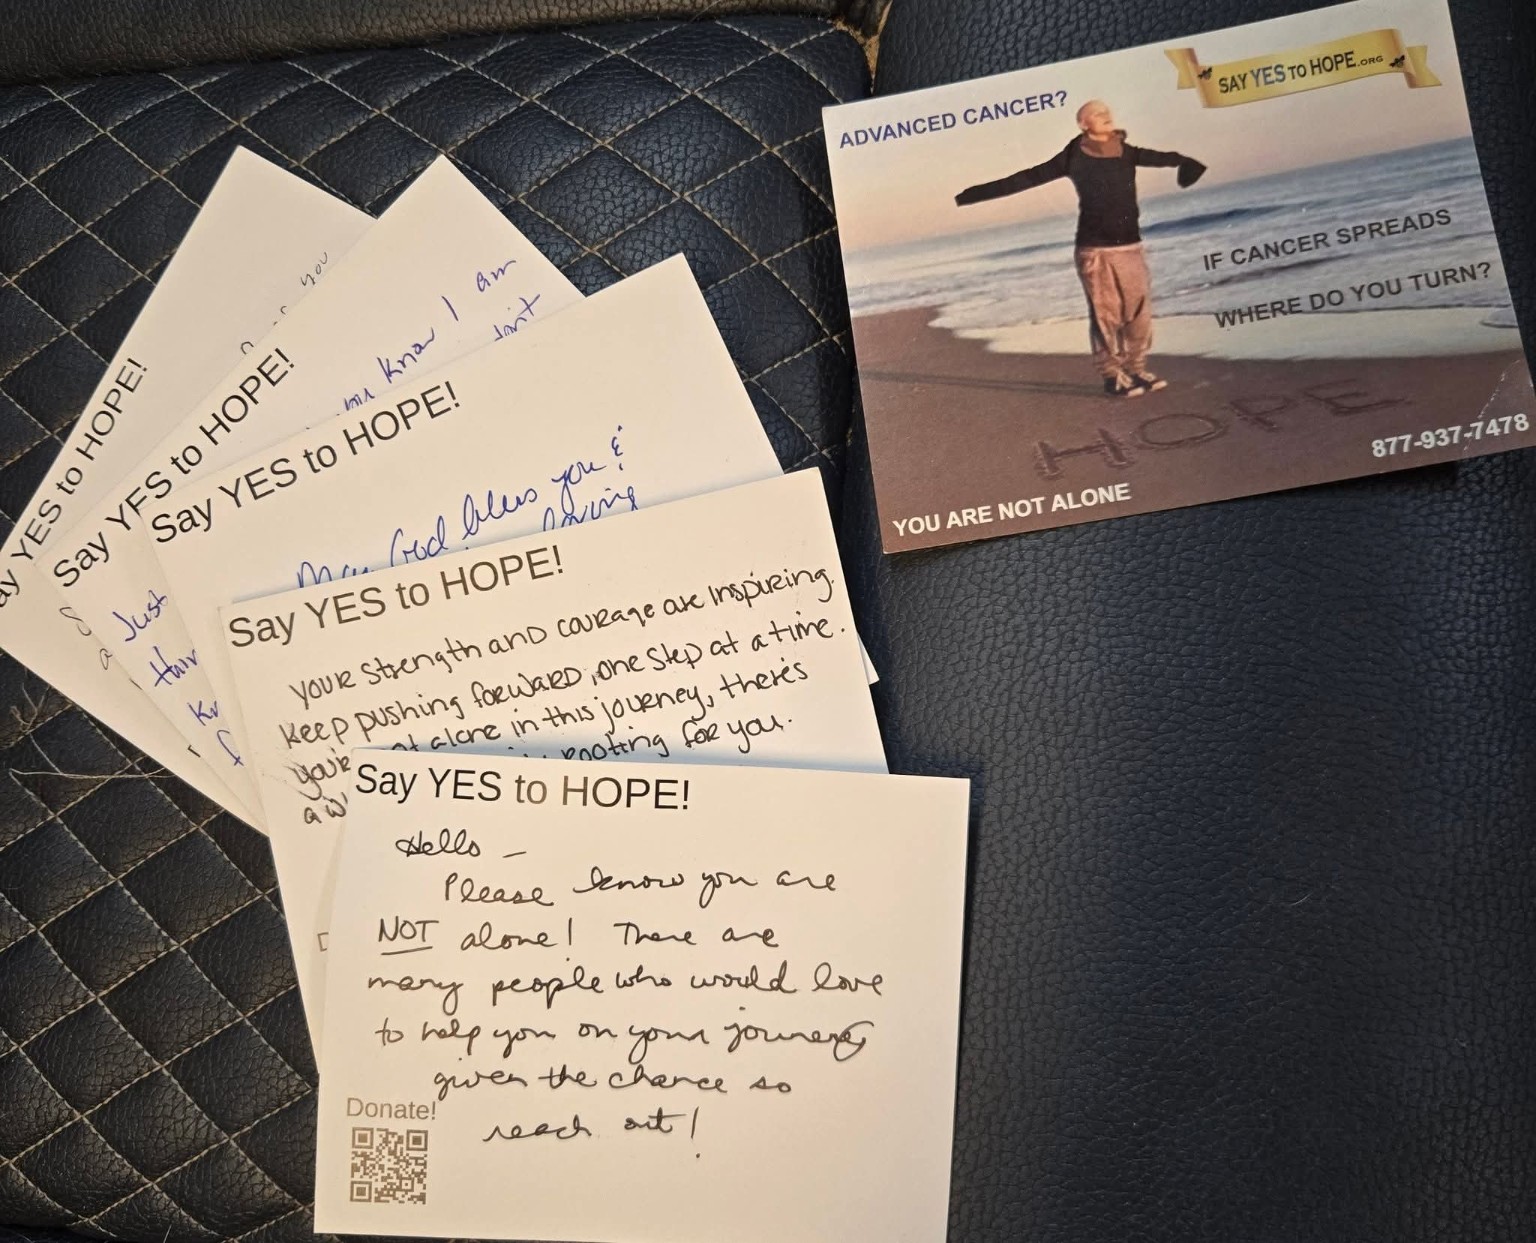 SAY YES TO HOPE.ORG
ADVANCED CANCER?
IF CANCER SPREADS
WHERE DO YOU TURN?
HOPE
877-937-7478
YOU ARE NOT ALONE
ay YES to HOPE!
you
Say YES to HOPE!
know I am
Just
Say YES to HOPE!
May God bless you &
loving
Say YES to HOPE!
your strength and courage are inspiring.
keep pushing forward, one step at a time.
alone in this journey, there's
rooting for you.
Say YES to HOPE!
Hello -
Please know you are
NOT alone! There are
many people who would love
to help you on your journey
given the chance so
reach out!
Donate!